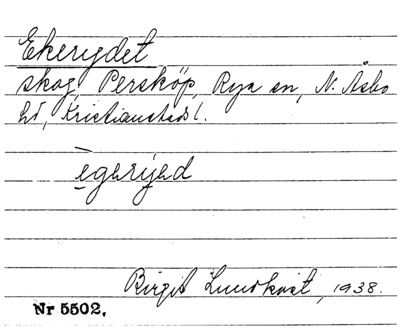 Ekerydet
skog, Persköp, Rya sn, N. Åsbo
hd, Kristianstads l.
Birgit Lundkvist, 1938.
Nr 5502.